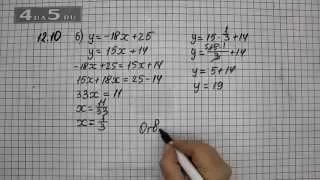 4ДА5.RU
12.10 б) y=-18x+25
y=15x+14
-18x+25=15x+14
15x+18x=25-14
33x=11
x=11/33
x=1/3
y=15·1/3+14
y=5+14
y=19
Отв